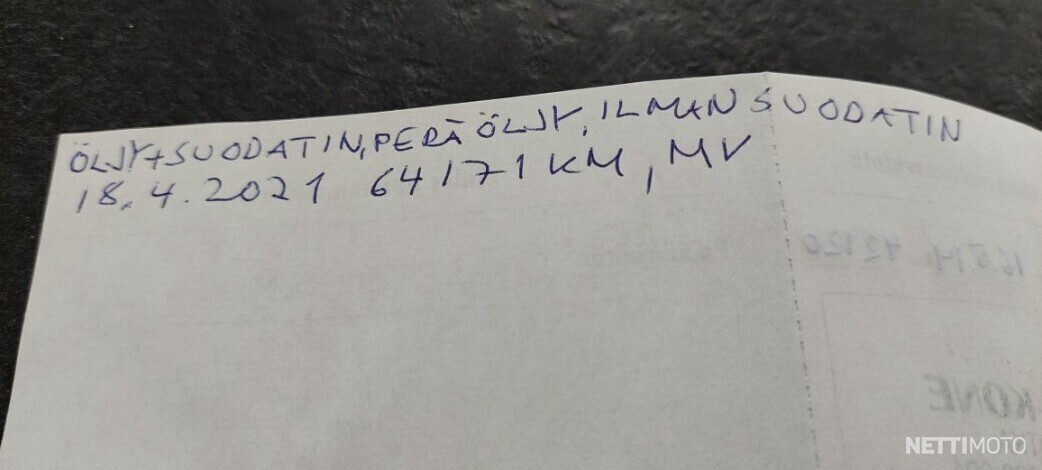 ÖLJY+SUODATIN, PERÄ ÖLJY, ILMAN SUODATIN
18.4.2021 64171 KM, MV
KONE
NETTIMOTO